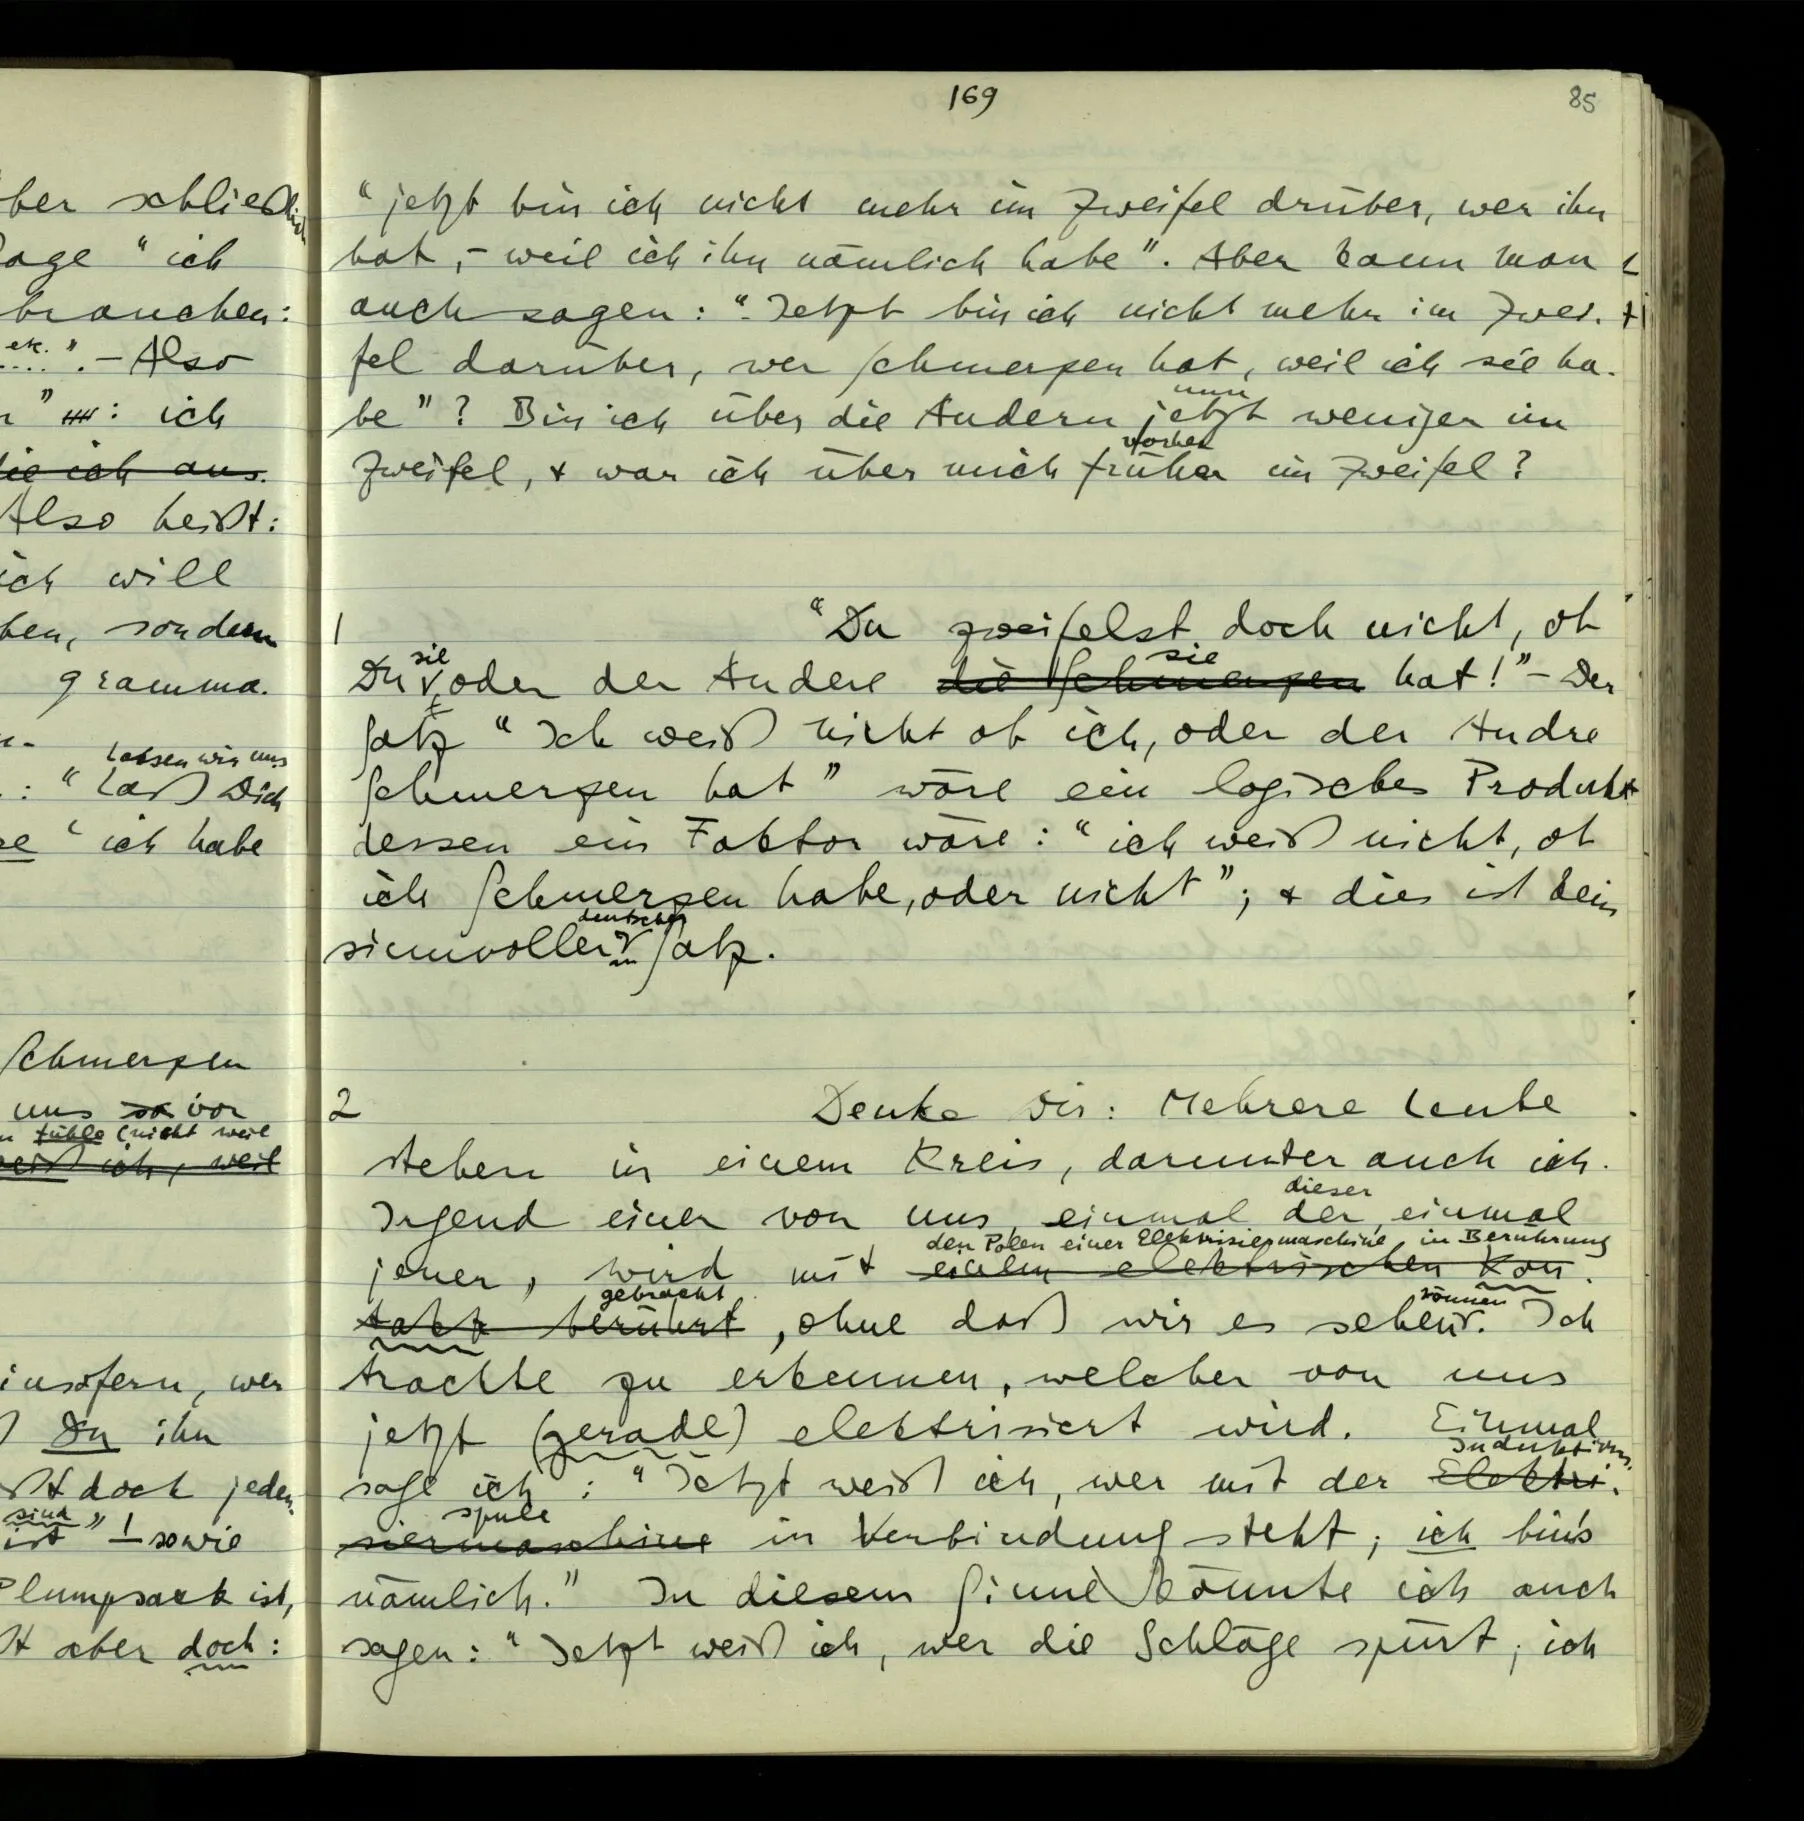 ber schließlich
age “ich
brauchen:
etc.”. – Also
”: ich
die ich aus.
Also heißt:
ich will
ben, sondern
gramma.
Lassen wir uns
: “Laß Dich
se ‘ich habe
Schmerzen
uns so vor
fühle (nicht weil
weiß ich, weil
insofern, wer
Du ihn
doch jeden
sind
ist”! – sowie
Plumpsack ist,
aber doch:
169
85
“jetzt bin ich nicht mehr im Zweifel drüber, wer ihn
hat, – weil ich ihn nämlich habe”. Aber kann man
auch sagen: “Jetzt bin ich nicht mehr im Zwei-
fel darüber, wer Schmerzen hat, weil ich sie ha-
nun
be”? Bin ich über die Andern jetzt weniger im
vorher
Zweifel, & war ich über mich früher im Zweifel?
1 “Du zweifelst doch nicht, ob
sie sie
Du oder der Andere die Schmerzen hat!” – Der
Satz “Ich weiß nicht ob ich, oder der Andre
Schmerzen hat” wäre ein logisches Produkt
dessen ein Faktor wäre: “ich weiß nicht, ob
ich Schmerzen habe, oder nicht”; & dies ist kein
deutscher
sinnvoller Satz.
2 Denke Dir: Mehrere Leute
stehen in einem Kreis, darunter auch ich.
dieser
Irgend einer von uns, einmal der, einmal
den Polen einer Elektrisiermaschine in Berührung
jener, wird mit einem elektrischen Kon-
gebracht können
takt berührt, ohne daß wir es sehen. Ich
trachte zu erkennen, welcher von uns
jetzt (gerade) elektrisiert wird. Einmal
Induktions-
sage ich: “Jetzt weiß ich, wer mit der Elektri-
spule
siermaschine in Verbindung steht; ich bin's
nämlich.” In diesem Sinne könnte ich auch
sagen: “Jetzt weiß ich, wer die Schläge spürt; ich